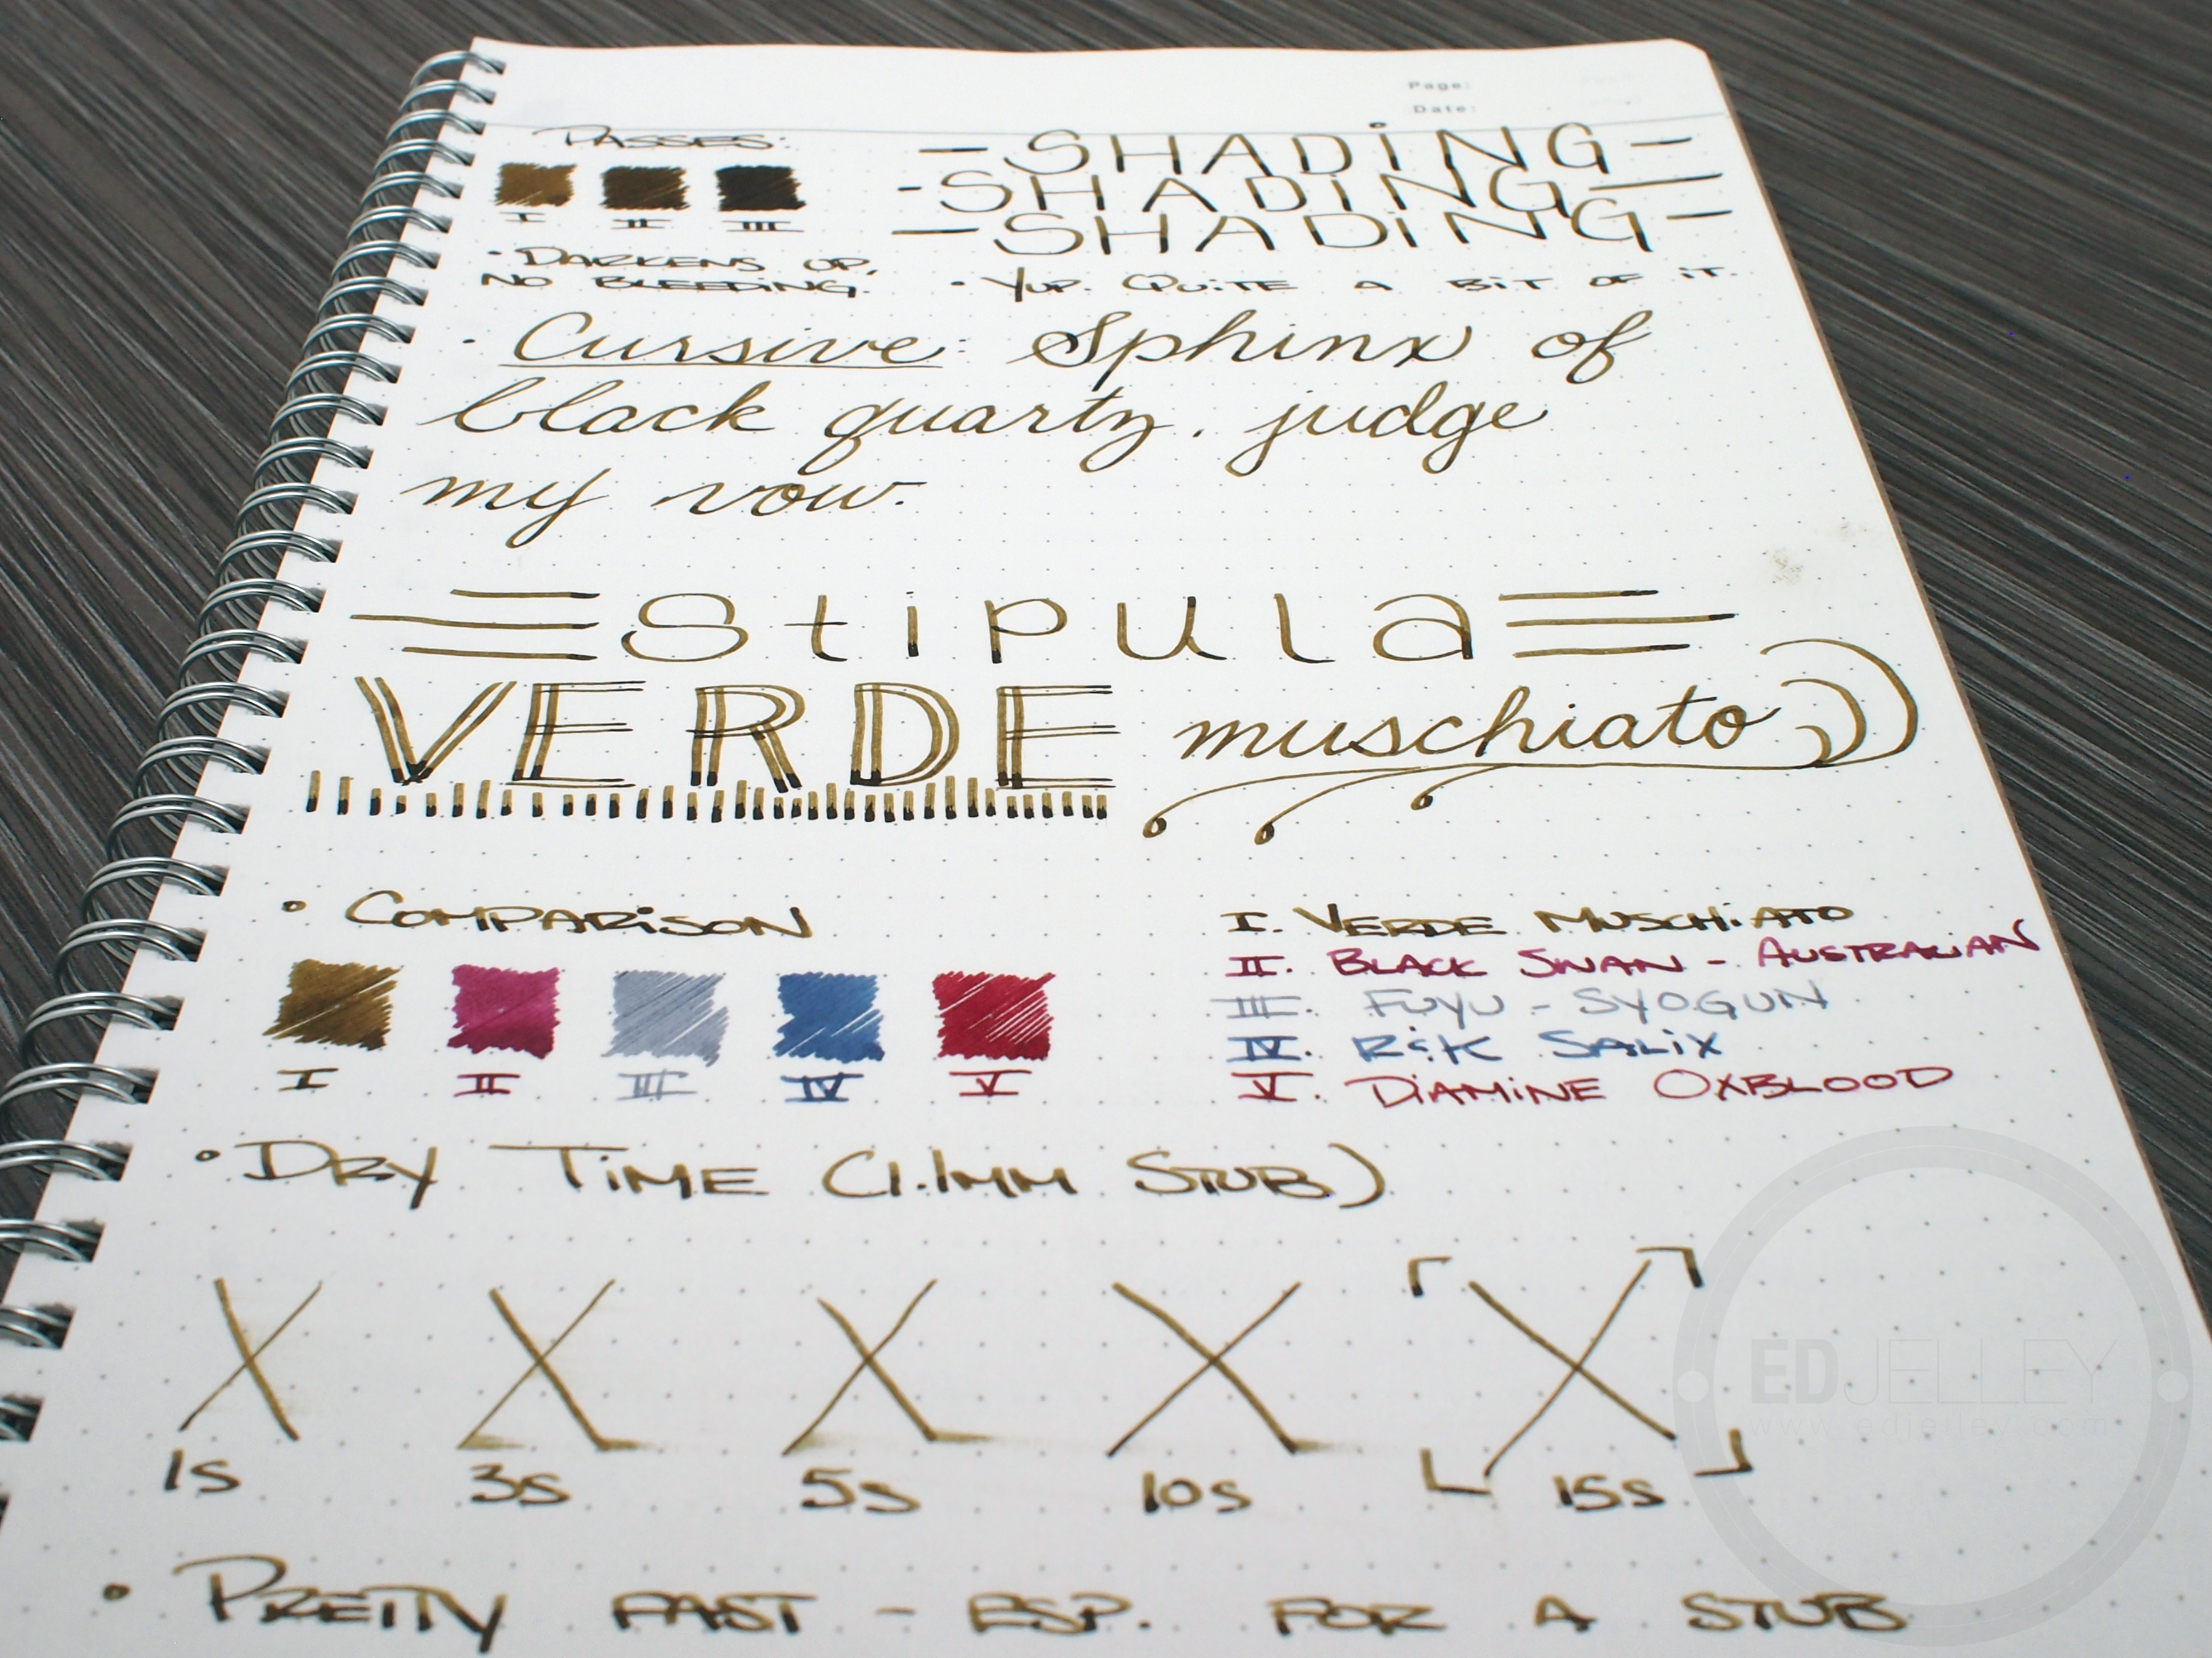 Page:
Date:
PASSES:
I II III
• DARKENS UP,
NO BLEEDING.
- SHADiNG -
- SHADiNG -
- SHADiNG -
• YUP. QUiTE A BiT OF iT.
• Cursive: Sphinx of
black quartz, judge
my vow.
stipula
VERDE muschiato
• COMPARiSON
I II III IV V
I. VERDE MUSCHiATO
II. BLACK SWAN - AUSTRALIAN
III. FUYU - SYOGUN
IV. R&K SALiX
V. DiAMiNE OXBLOOD
• DRY TiME (1.1MM STUB)
1s 3s 5s 10s 15s
EDJELLEY
www.edjelley.com
• PRETTY FAST - ESP. FOR A STUB